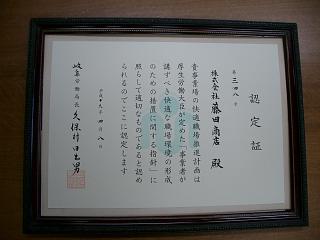 認定証
第三四八号
株式会社 藤田商店 殿
貴事業場の快適職場推進計画は
厚生労働大臣が定めた「事業者が
講ずべき快適な職場環境の形成
のための措置に関する指針」に
照らして適切なものであると認め
られるのでここに認定します
平成十八年四月八日
岐阜労働局長 久保村日出男